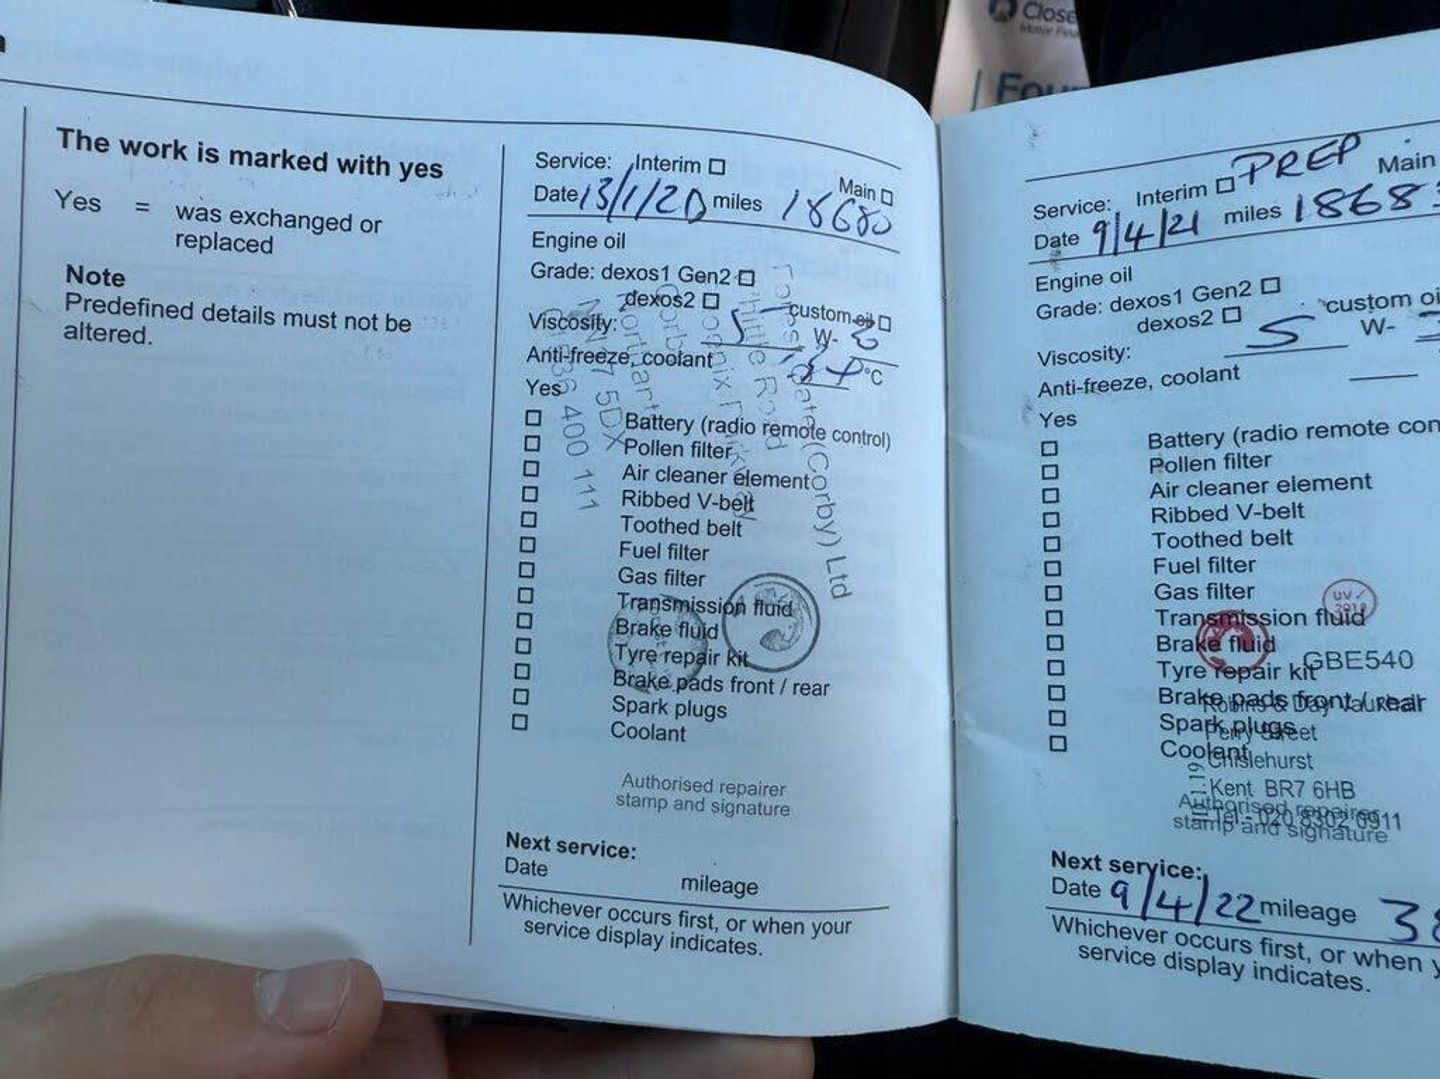 Close
Motor Fina
Four
The work is marked with yes
Yes = was exchanged or
replaced
Note
Predefined details must not be
altered.
Service: Interim ☐ Main ☐
Date 13/1/20 miles 18680
Engine oil
Grade: dexos1 Gen2 ☐
dexos2 ☐ custom oil ☐
Viscosity: 5 W-
Anti-freeze, coolant °C
Yes
☐ Battery (radio remote control)
☐ Pollen filter
☐ Air cleaner element
☐ Ribbed V-belt
☐ Toothed belt
☐ Fuel filter
☐ Gas filter
☐ Transmission fluid
☐ Brake fluid
☐ Tyre repair kit
☐ Brake pads front / rear
☐ Spark plugs
☐ Coolant
(Corby) Ltd
Road
NN17 5DX
400 111
Authorised repairer
stamp and signature
Next service:
Date mileage
Whichever occurs first, or when your
service display indicates.
Service: Interim ☐ PREP Main
Date 9/4/21 miles 18683
Engine oil
Grade: dexos1 Gen2 ☐
dexos2 ☐ custom oi
Viscosity: 5 W-
Anti-freeze, coolant
Yes
☐ Battery (radio remote con
☐ Pollen filter
☐ Air cleaner element
☐ Ribbed V-belt
☐ Toothed belt
☐ Fuel filter
☐ Gas filter
☐ Transmission fluid
☐ Brake fluid
☐ Tyre repair kit
☐ Brake pads front / rear
☐ Spark plugs
☐ Coolant
UV ✓
GBE540
Robins & Day Vauxhall
Perry Street
Chislehurst
Kent BR7 6HB
Tel:- 020 8302 0911
Authorised repairer
stamp and signature
Next service:
Date 9/4/22 mileage 38
Whichever occurs first, or when y
service display indicates.